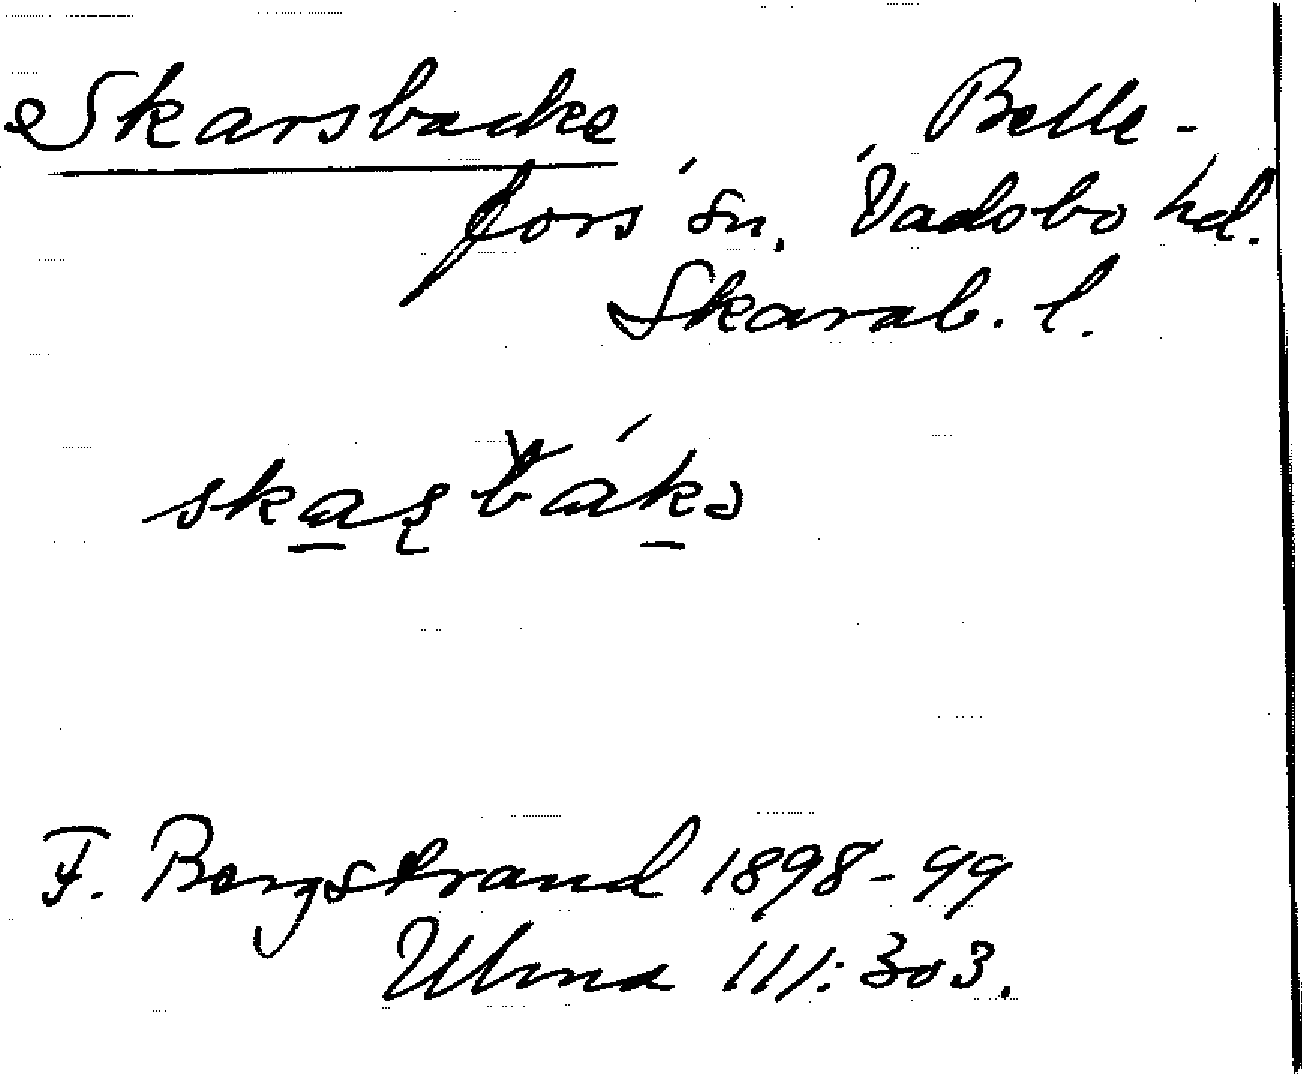 Skarsbacke Belle-
fors sn, Vadsbo hd.
Skarab. l.
F. Bergstrand 1898-99
Ulma 111:303.